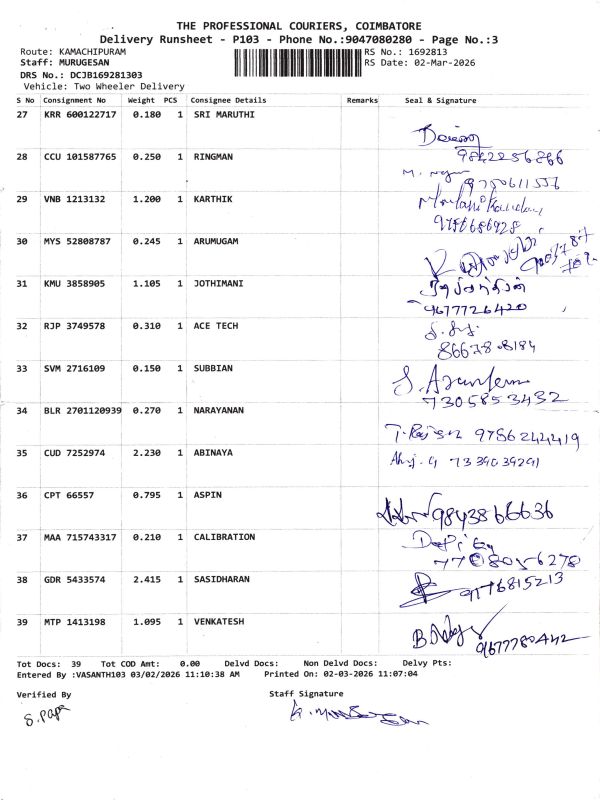 THE PROFESSIONAL COURIERS, COIMBATORE
Delivery Runsheet - P103 - Phone No.:9047080280 - Page No.:3
Route: KAMACHIPURAM RS No.: 1692813
Staff: MURUGESAN RS Date: 02-Mar-2026
DRS No.: DCJB169281303
Vehicle: Two Wheeler Delivery
S No Consignment No Weight PCS Consignee Details Remarks Seal & Signature
27 KRR 600122717 0.180 1 SRI MARUTHI
9842256866
28 CCU 101587765 0.250 1 RINGMAN
9750611556
29 VNB 1213132 1.200 1 KARTHIK
9786686928
30 MYS 52808787 0.245 1 ARUMUGAM
31 KMU 3858905 1.105 1 JOTHIMANI
9677726420
32 RJP 3749578 0.310 1 ACE TECH
8667808184
33 SVM 2716109 0.150 1 SUBBIAN
7305853432
34 BLR 2701120939 0.270 1 NARAYANAN
9786244419
35 CUD 7252974 2.230 1 ABINAYA
7339039291
36 CPT 66557 0.795 1 ASPIN
9843866636
37 MAA 715743317 0.210 1 CALIBRATION
7708056278
38 GDR 5433574 2.415 1 SASIDHARAN
9176815213
39 MTP 1413198 1.095 1 VENKATESH
9677780442
Tot Docs: 39 Tot COD Amt: 0.00 Delvd Docs: Non Delvd Docs: Delvy Pts:
Entered By :VASANTH103 03/02/2026 11:10:38 AM Printed On: 02-03-2026 11:07:04
Verified By Staff Signature
S. Papa